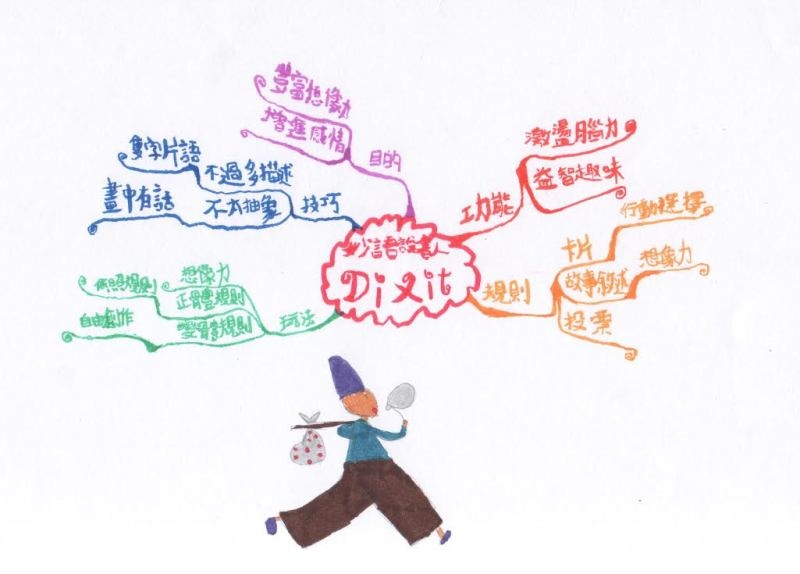 妙語說書人
Dixit
功能
激盪腦力
益智趣味
規則
卡片
行動選擇
故事敘述
想像力
投票
玩法
想像力
正體規則
依照規則
變體規則
自由創作
技巧
不過多描述
隻字片語
不太抽象
畫中有話
目的
豐富想像力
增進感情